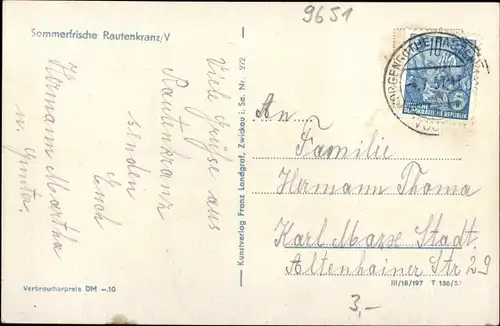 9651
Sommerfrische Rautenkranz/V
Viele Grüße aus
Rautenkranz
senden
Euch
Hermann Martha
u. Günter.
Verbraucherpreis DM –.10
Kunstverlag Franz Landgraf, Zwickau i. Sa. Nr. 272
DEUTSCHE
DEMOKRATISCHE REPUBLIK
An
Familie
Hermann Thoma
Karl Marx Stadt.
Altenhainer Str 29
III/18/197 T 136/57
3,-